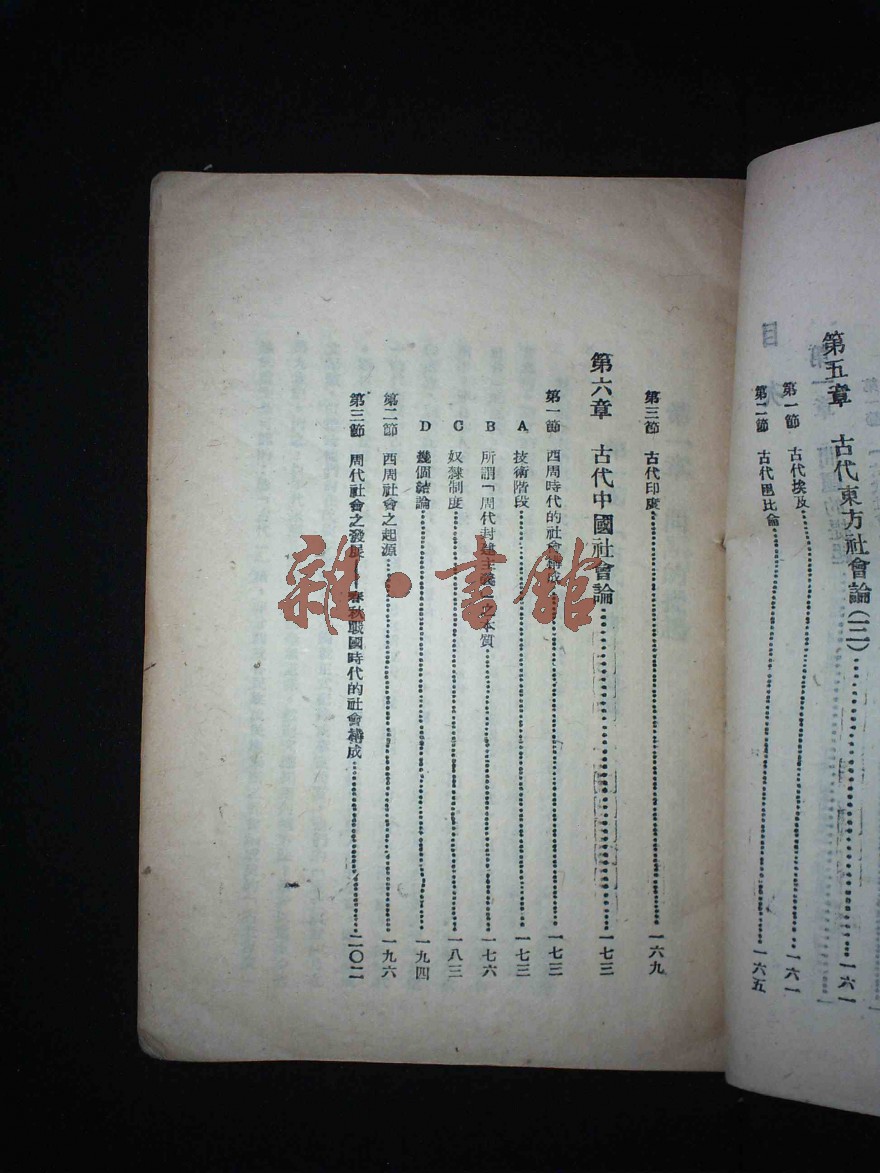 第五章 古代東方社會論(二)…………一六一
第一節 古代埃及…………一六一
第二節 古代巴比侖…………一六五
第三節 古代印度…………一六九
第六章 古代中國社會論…………一七三
第一節 西周時代的社會構成…………一七三
A 技術階段…………一七三
B 所謂「周代封建主義」之本質…………一七六
C 奴隸制度…………一八三
D 幾個結論…………一九四
第二節 西周社會之起源…………一九六
第三節 周代社會之發展——春秋戰國時代的社會構成…………二〇二
雜·書館